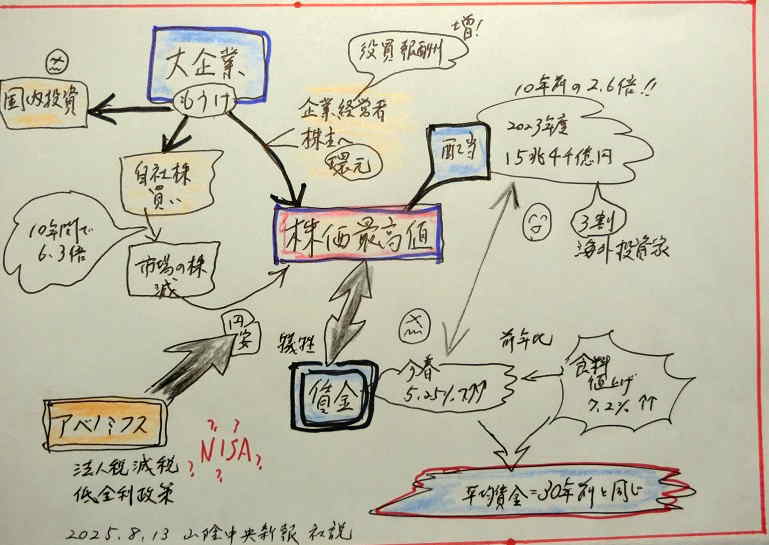 大企業
もうけ
国内投資
自社株
買い
10年間で
6.3倍
市場の株
減
企業経営者
株主へ
還元
役員報酬
増!
配当
10年前の2.6倍!!
2023年度
15兆4千億円
3割
海外投資家
株価最高値
円
安
犠牲
賃金
今春
5.25%
前年比
食料
値上げ
7.2%
アベノミクス
法人税減税
低金利政策
NISA
????
平均賃金=30年前と同じ
2025.8.13 山陰中央新報 社説